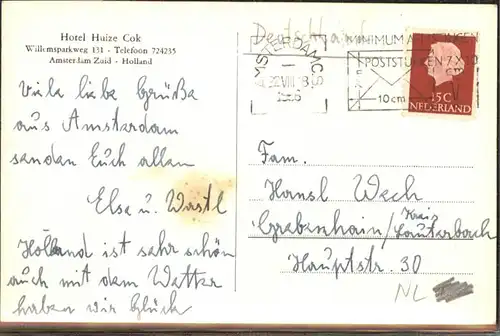 Hotel Huize Cok
Willemsparkweg 131 - Telefoon 724235
Amsterdam Zuid - Holland
Viele liebe Grüße
aus Amsterdam
senden Euch allen
Else u. Wastl
Holland ist sehr schön
auch mit dem Wetter
haben wir Glück
Deutschland
MINIMUM AFMETINGEN
POSTSTUKKEN 7 X 10
10cm
AMSTERDAM C.S.
22 VIII 18
NEDERLAND
15 C
Fam.
Hansl Wech
Grebenhain / Kreis
Lauterbach
Hauptstr. 30
NL